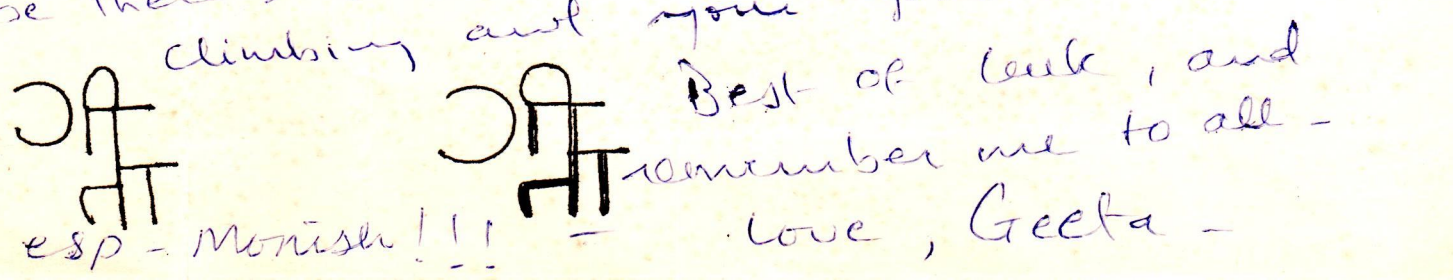 Climbing and your
गीता गीता Best of luck, and
remember me to all -
esp - Monish!!! - Love, Geeta -